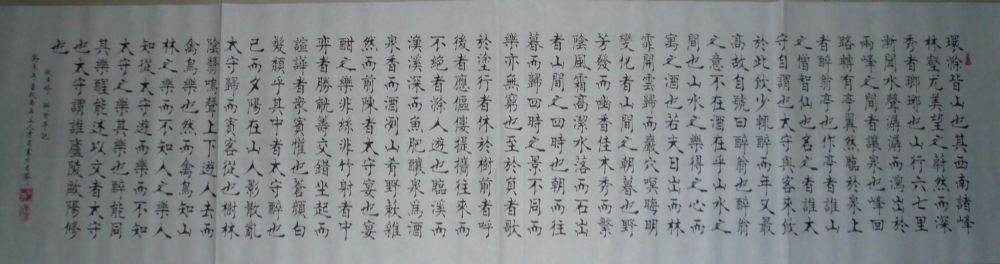 環滁皆山也其西南諸峰
林壑尤美望之蔚然而深
秀者瑯琊也山行六七里
漸聞水聲潺潺而瀉出於
兩峰之間者讓泉也峰回
路轉有亭翼然臨於泉上
者醉翁亭也作亭者誰山
之僧智仙也名之者誰太
守自謂也太守與客來飲
於此飲少輒醉而年又最
高故自號曰醉翁也醉翁
之意不在酒在乎山水之
間也山水之樂得之心而
寓之酒也若夫日出而林
霏開雲歸而巖穴暝晦明
變化者山間之朝暮也野
芳發而幽香佳木秀而繁
陰風霜高潔水落而石出
者山間之四時也朝而往
暮而歸四時之景不同而
樂亦無窮也至於負者歌
於塗行者休於樹前者呼
後者應傴僂提攜往來而
不絕者滁人遊也臨溪而
漁溪深而魚肥釀泉為酒
泉香而酒洌山肴野蔌雜
然而前陳者太守宴也宴
酣之樂非絲非竹射者中
弈者勝觥籌交錯坐起而
諠譁者眾賓懽也蒼顏白
髮頹乎其中者太守醉也
已而夕陽在山人影散亂
太守歸而賓客從也樹林
陰翳鳴聲上下遊人去而
禽鳥樂也然而禽鳥知山
林之樂而不知人之樂人
知從太守遊而樂而不知
太守之樂其樂也醉能同
其樂醒能述以文者太守
也太守謂誰廬陵歐陽修
也